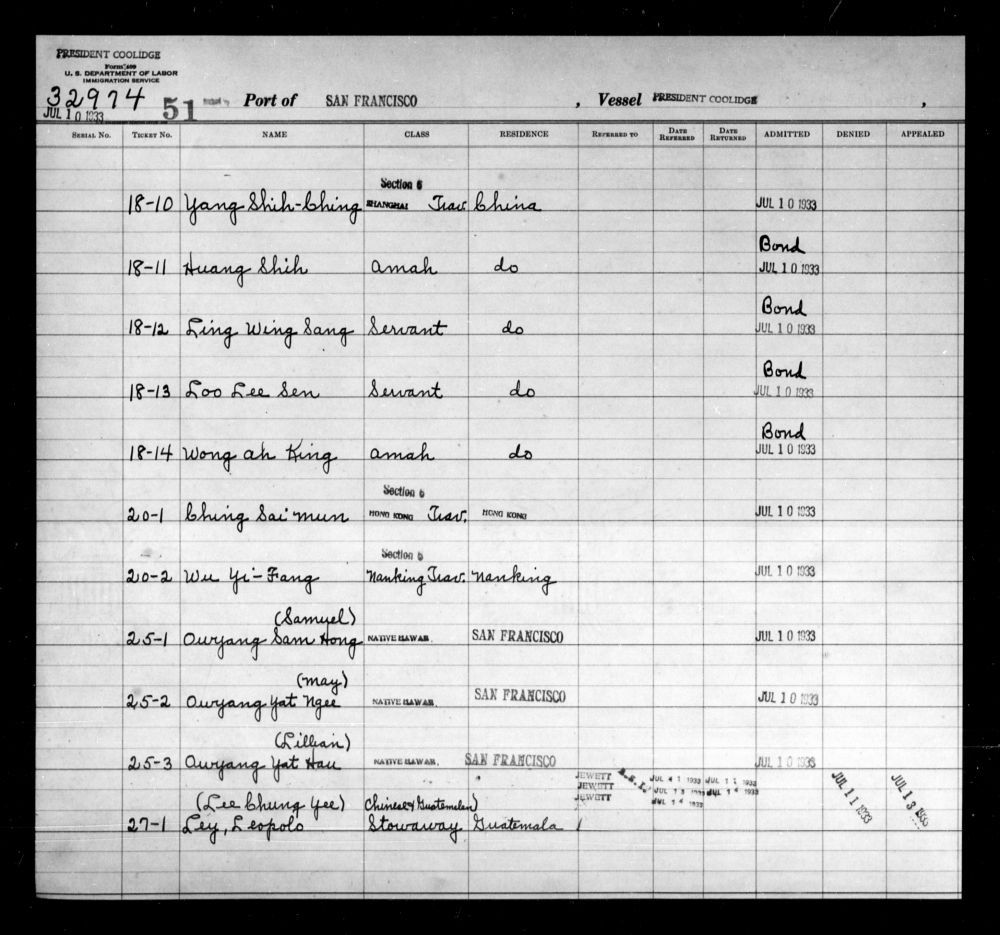 PRESIDENT COOLIDGE
Form 500
U. S. DEPARTMENT OF LABOR
IMMIGRATION SERVICE
32974 51 Port of SAN FRANCISCO , Vessel PRESIDENT COOLIDGE ,
JUL 10 1933
SERIAL NO. TICKET NO. NAME CLASS RESIDENCE REFERRED TO DATE REFERRED DATE RETURNED ADMITTED DENIED APPEALED
Section 6
18-10 Yang Shih-Ching SHANGHAI Trav. China JUL 10 1933
Bond
18-11 Huang Shih amah do JUL 10 1933
Bond
18-12 Ling Wing Sang Servant do JUL 10 1933
Bond
18-13 Loo Lee Sen Servant do JUL 10 1933
Bond
18-14 Wong ah King amah do JUL 10 1933
Section 6
20-1 Ching Sai mun HONG KONG Trav. HONG KONG JUL 10 1933
Section 6
20-2 Wu Yi-Fang Nanking Trav. Nanking JUL 10 1933
(Samuel)
25-1 Ouyang Sam Hong NATIVE HAWAII. SAN FRANCISCO JUL 10 1933
(May)
25-2 Ouyang Yat Ngee NATIVE HAWAII. SAN FRANCISCO JUL 10 1933
(Lillian)
25-3 Ouyang Yat Hau NATIVE HAWAII. SAN FRANCISCO JUL 10 1933
JEWETT JUL 11 1933 JUL 11 1933
JEWETT JUL 13 1933 JUL 14 1933
JEWETT JUL 14 1933
(Lee Chung Yee) Chinese &amp; Guatemalan)
27-1 Ley, Leopolo Stowaway Guatemala JUL 11 1933 JUL 13 1933